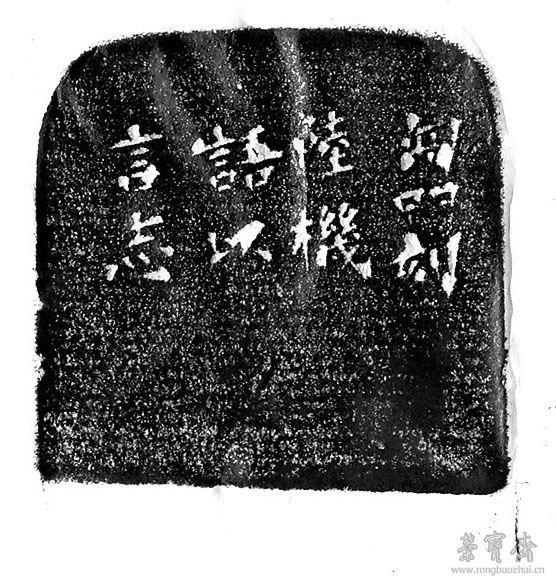 刻
陸機
語以
言志
榮寶齋
www.rongbaozhai.cn